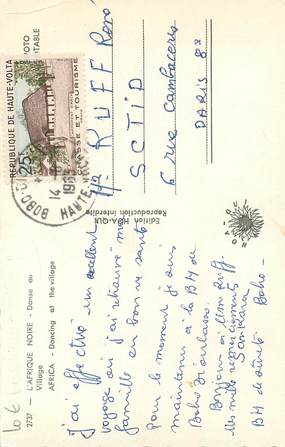 2737 — L'AFRIQUE NOIRE - Danse au
Village
AFRICA - Dancing at the village
J'ai effectué un excellent
voyage où j'ai retrouvé ma
famille en bonne santé
Pour le moment je suis
maintenu à la BH du
Bobo Dioulasso.
Bonjour à Mon
des mille remerciements
Sankara
BH de sûreté Bobo-
Edition HOA-QUI
Reproduction interdite
HOA-QUI
REPUBLIQUE DE HAUTE-VOLTA
25F
CHASSE ET TOURISME
BOBO-DI
14
196
HAUTE
Mr RUFF René
SCTIP
6 rue Cambacérès
PARIS 8e